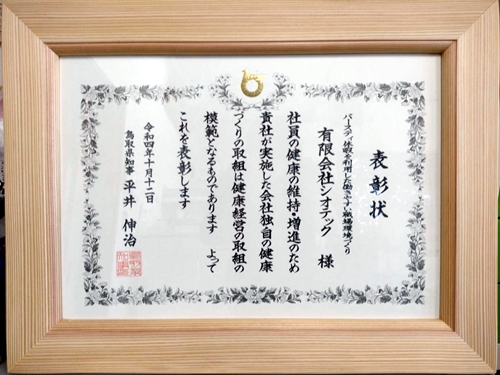 表彰状
バースデイ休暇を利用した働きやすい職場環境づくり
有限会社シオテック 様
社員の健康の維持・増進のため
貴社が実施した会社独自の健康
づくりの取組は健康経営の取組の
模範となるものであります よって
これを表彰します
令和四年十月十二日
鳥取県知事 平井 伸治